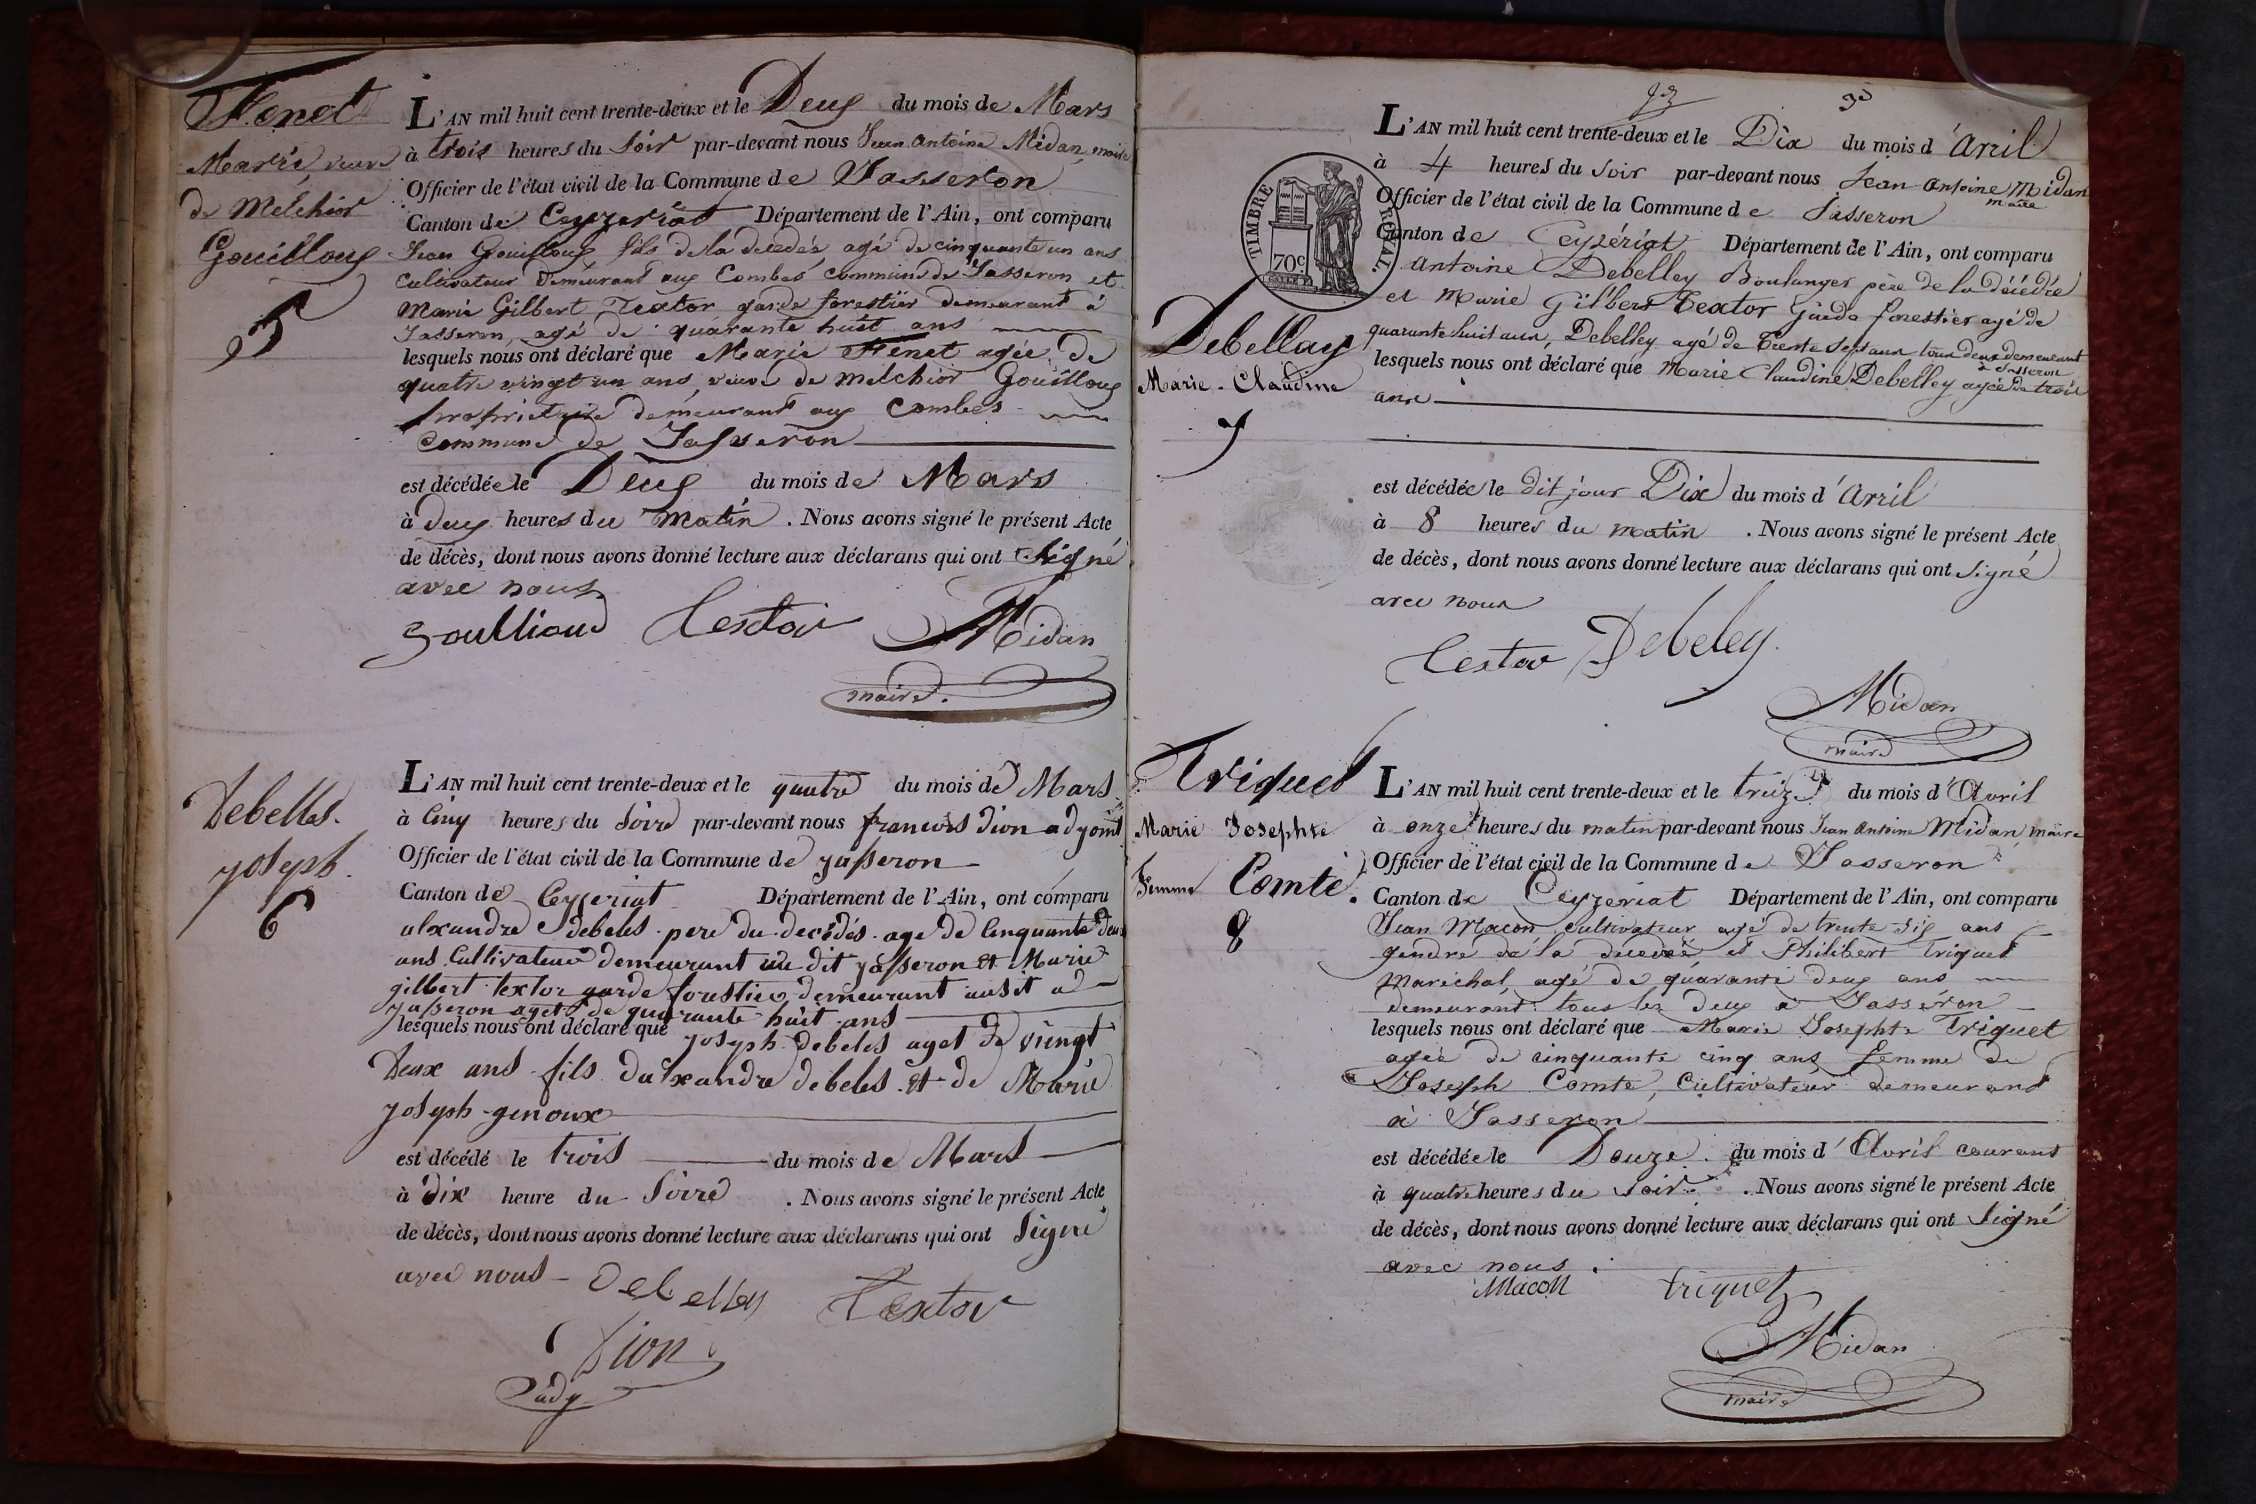 Fenet
Marie, veuve
de Melchior
Gouilloux
5
L'AN mil huit cent trente-deux et le Deux du mois de Mars
à trois heures du soir par-devant nous Jean Antoine Midan, maire
Officier de l'état civil de la Commune de Jasseron
Canton de Ceyzeriat Département de l'Ain, ont comparu
Jean Gouilloux, fils de la décédée agé de cinquante un ans
cultivateur demeurant aux Combes commune de Jasseron, et
Marie Gilbert Textor garde forestier demeurant à
Jasseron, agé de quarante huit ans
lesquels nous ont déclaré que Marie Fenet agée de
quatre vingt un ans, veuve de Melchior Gouilloux
propriétaire demeurant aux Combes
commune de Jasseron
est décédée le Deux du mois de Mars
à deux heures du matin. Nous avons signé le présent Acte
de décès, dont nous avons donné lecture aux déclarans qui ont signé
avec nous
Goullioud Textor Midan
maire.
Debelles.
joseph.
6
L'AN mil huit cent trente-deux et le quatre du mois de Mars
à Cinq heures du Soire par-devant nous francois Dion adjoint
Officier de l'état civil de la Commune de jasseron
Canton de Ceyzeriat Département de l'Ain, ont comparu
alexandre debeles pere du décédés age de Cinquante deux
ans Cultivateur demeurant au dit jasseron et Marie
gilbert textor garde forestier demeurant ausit a
jasseron aget de quarante huit ans
lesquels nous ont déclaré que joseph debeles aget de vingt
deux ans fils d'alexandre debeles et de Marie
joseph genoux
est décédé le trois du mois de Mars
à dix heure du Soire. Nous avons signé le présent Acte
de décès, dont nous avons donné lecture aux déclarans qui ont Signé
avec nous
Debelley Textor
Dion
adj
L'AN mil huit cent trente-deux et le Dix du mois d'Avril
à 4 heures du soir par-devant nous Jean-Antoine Midan
maire
Officier de l'état civil de la Commune de Jasseron
TIMBRE ROYAL.
70c
Canton de Ceyzériat Département de l'Ain, ont comparu
Antoine Debelley Boulanger père de la décédée
et Marie Gilbert Textor Garde forestier agé de
quarante huit ans, Debelley agé de trente sept ans tous deux demeurant
à Jasseron
Debellay
Marie-Claudine
7
lesquels nous ont déclaré que Marie Claudine Debelley agée de trois
ans
est décédée le dit jour Dix du mois d'Avril
à 8 heures du matin. Nous avons signé le présent Acte
de décès, dont nous avons donné lecture aux déclarans qui ont signé
avec nous
Textor Debeley
Midan
maire
Triquet
Marie Josephte
Femme Comte.
8
L'AN mil huit cent trente-deux et le treize du mois d'Avril
à onze heures du matin par-devant nous Jean Antoine Midan, maire
Officier de l'état civil de la Commune de Jasseron
Canton de Ceyzeriat Département de l'Ain, ont comparu
Jean Macon cultivateur agé de trente six ans
gendre de la décédée et Philibert Triquet
Maréchal, agé de quarante deux ans
demeurant tous les deux à Jasseron
lesquels nous ont déclaré que Marie Josephte Triquet
agée de cinquante cinq ans femme de
Joseph Comte, Cultivateur demeurant
à Jasseron
est décédée le Douze du mois d'Avril courant
à quatre heures du soir. Nous avons signé le présent Acte
de décès, dont nous avons donné lecture aux déclarans qui ont Signé
avec nous.
Macon triquet
Midan
maire